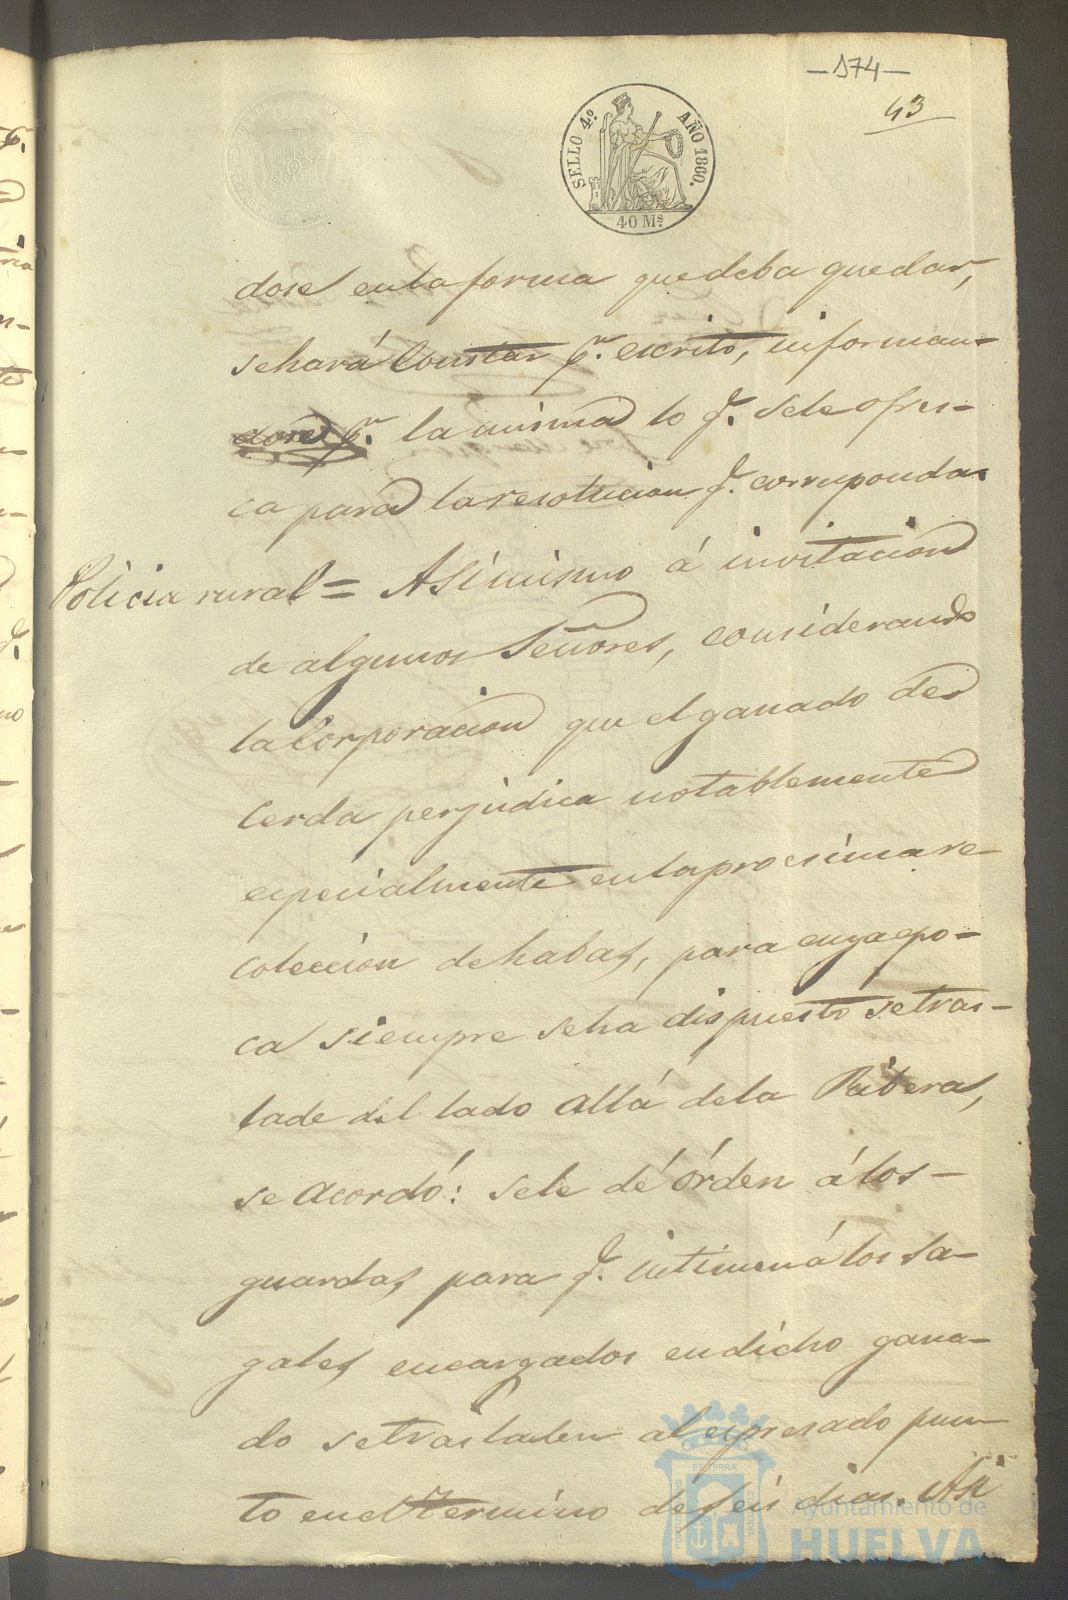 -174-
43
SELLO 4.º AÑO 1860.
40 Ms.
dose en la forma que deba quedar,
se hará constar pr. escrito, informan-
dose pr. la misma lo q. se le ofrez-
ca para la resolucion q. corresponda.
Policia rural = Asimismo á invitacion
de algunos Señores, considerando
la Corporacion que el ganado de
Cerda perjudica notablemente
especialmente en la procsima re-
coleccion de habas, para cuya epo-
ca siempre se ha dispuesto se tras-
lade del lado allá de la Ribera,
se acordó: se le dé órden á los-
guardas, para q. intimen á los za-
gales encargados en dicho gana-
do se trasladen al espresado pun
to en el término de seis dias. Asi
Ayuntamiento de
HUELVA